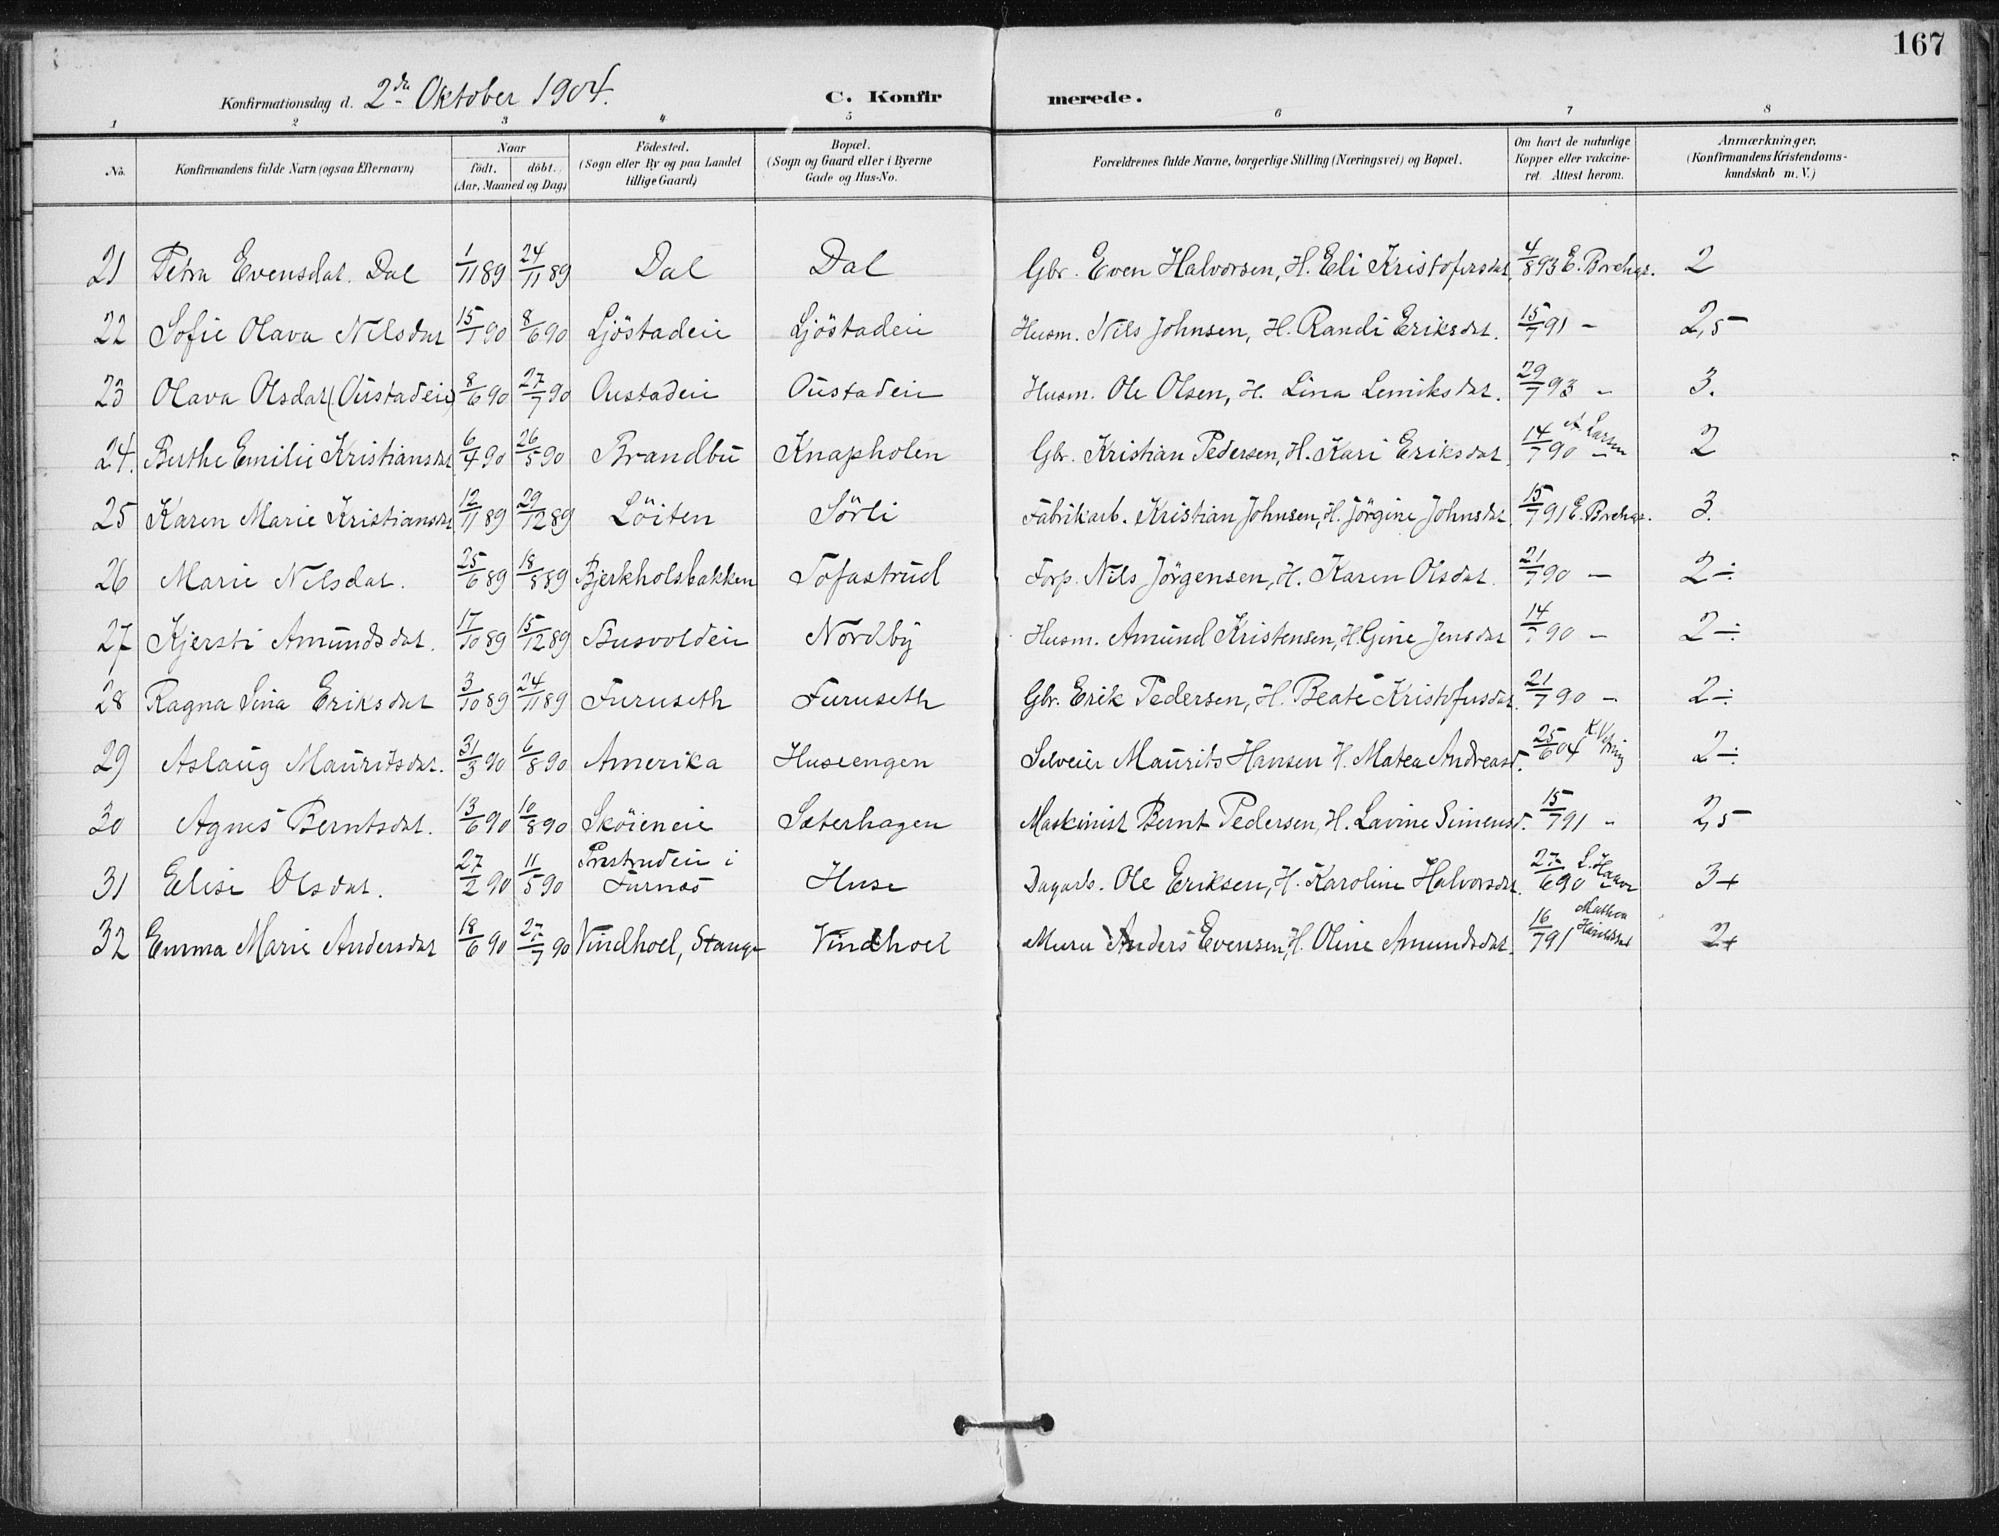 167
Konfirmationsdag d. 2den Oktober 1904. C. Konfirmerede.
1 2 3 4 5 6 7 8
No. Konfirmandens fulde Navn (ogsaa Efternavn) Naar födt. döbt. (Aar, Maaned og Dag) Födested. (Sogn eller By og paa Landet tillige Gaard) Bopæl. (Sogn og Gaard eller i Byerne Gade og Hus-No. Forældrenes fulde Navne, borgerlige Stilling (Næringsvei) og Bopæl. Om havt de naturlige Kopper eller vakcineret. Attest herom. Anmærkninger. (Konfirmandens Kristendomskundskab m. V.)
21 Petra Evensdat. Dal 1/11 89 24/11 89 Dal Dal Gbr. Even Halvorsen, H. Eli Kristofersdat. 4/8 93 E. Borchgr. 2
22 Sofie Olava Nilsdat 15/1 90 8/6 90 Ljöstadeie Ljöstadeie Husm. Nils Johnsen, H. Randi Eriksdat. 15/7 91 - 2,5
23 Olava Olsdat (Oustadeie) 8/6 90 27/7 90 Oustadeie Oustadeie Husm. Ole Olsen, H. Lina Lemiksdat. 29/7 93 - 3.
24. Berthe Emilie Kristiansdat 6/4 90 26/5 90 Brandbu Knapholen Gbr. Kristian Pedersen, H. Kari Eriksdat. 14/7 90 A Larsen 2
25 Karen Marie Kristiansdat 12/11 89 29/12 89 Löiten Sörli Fabrikarb. Kristian Johnsen, H. Jörgine Johnsdat 15/7 91 E. Borchgr. 3.
26 Marie Nilsdat. 25/6 89 18/8 89 Bjerkholsbakken Tofastrud Forp. Nils Jörgensen, H. Karen Olsdat. 21/7 90 - 2÷
27 Kjersti Amundsdat. 17/10 89 15/12 89 Busvoldeie Nordby Husm. Amund Kristensen, H. Gine Jensdat 14/7 90 - 2÷
28 Ragna Lina Eriksdat 3/10 89 24/11 89 Furuseth Furuseth Gbr. Erik Pedersen, H. Beate Kristofersdat. 21/7 90 - 2÷
29 Aslaug Mauritsdat. 31/3 90 6/8 90 Amerika Huseengen Selveier Maurits Hansen H. Matea Andreasd. 25/6 04 2÷
30 Agnes Berntsdat. 13/6 90 10/8 90 Sköieneie Sæterhagen Maskinist Bernt Pedersen, H. Lavine Simensd. 15/7 91 - 2,5
31 Elise Olsdat. 27/2 90 11/5 90 Prestrudeie i Furnæs Huse Dagarb. Ole Eriksen, H. Karoline Halvorsdat. 27/6 90 3+
32 Emma Marie Andersdat 18/6 90 27/7 90 Vindhoel, Stange Vindhoel Murer Anders Evensen, H. Oline Amundsdat. 16/7 91 2+